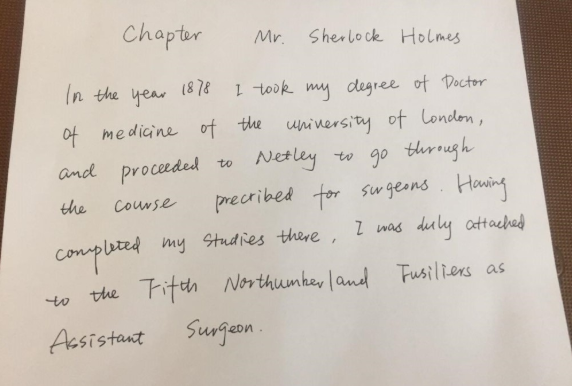 Chapter Mr. Sherlock Holmes
In the year 1878 I took my degree of Doctor
of medicine of the university of London,
and proceeded to Netley to go through
the course precribed for surgeons. Having
completed my studies there, I was duly attached
to the Fifth Northumberland Fusiliers as
Assistant Surgeon.